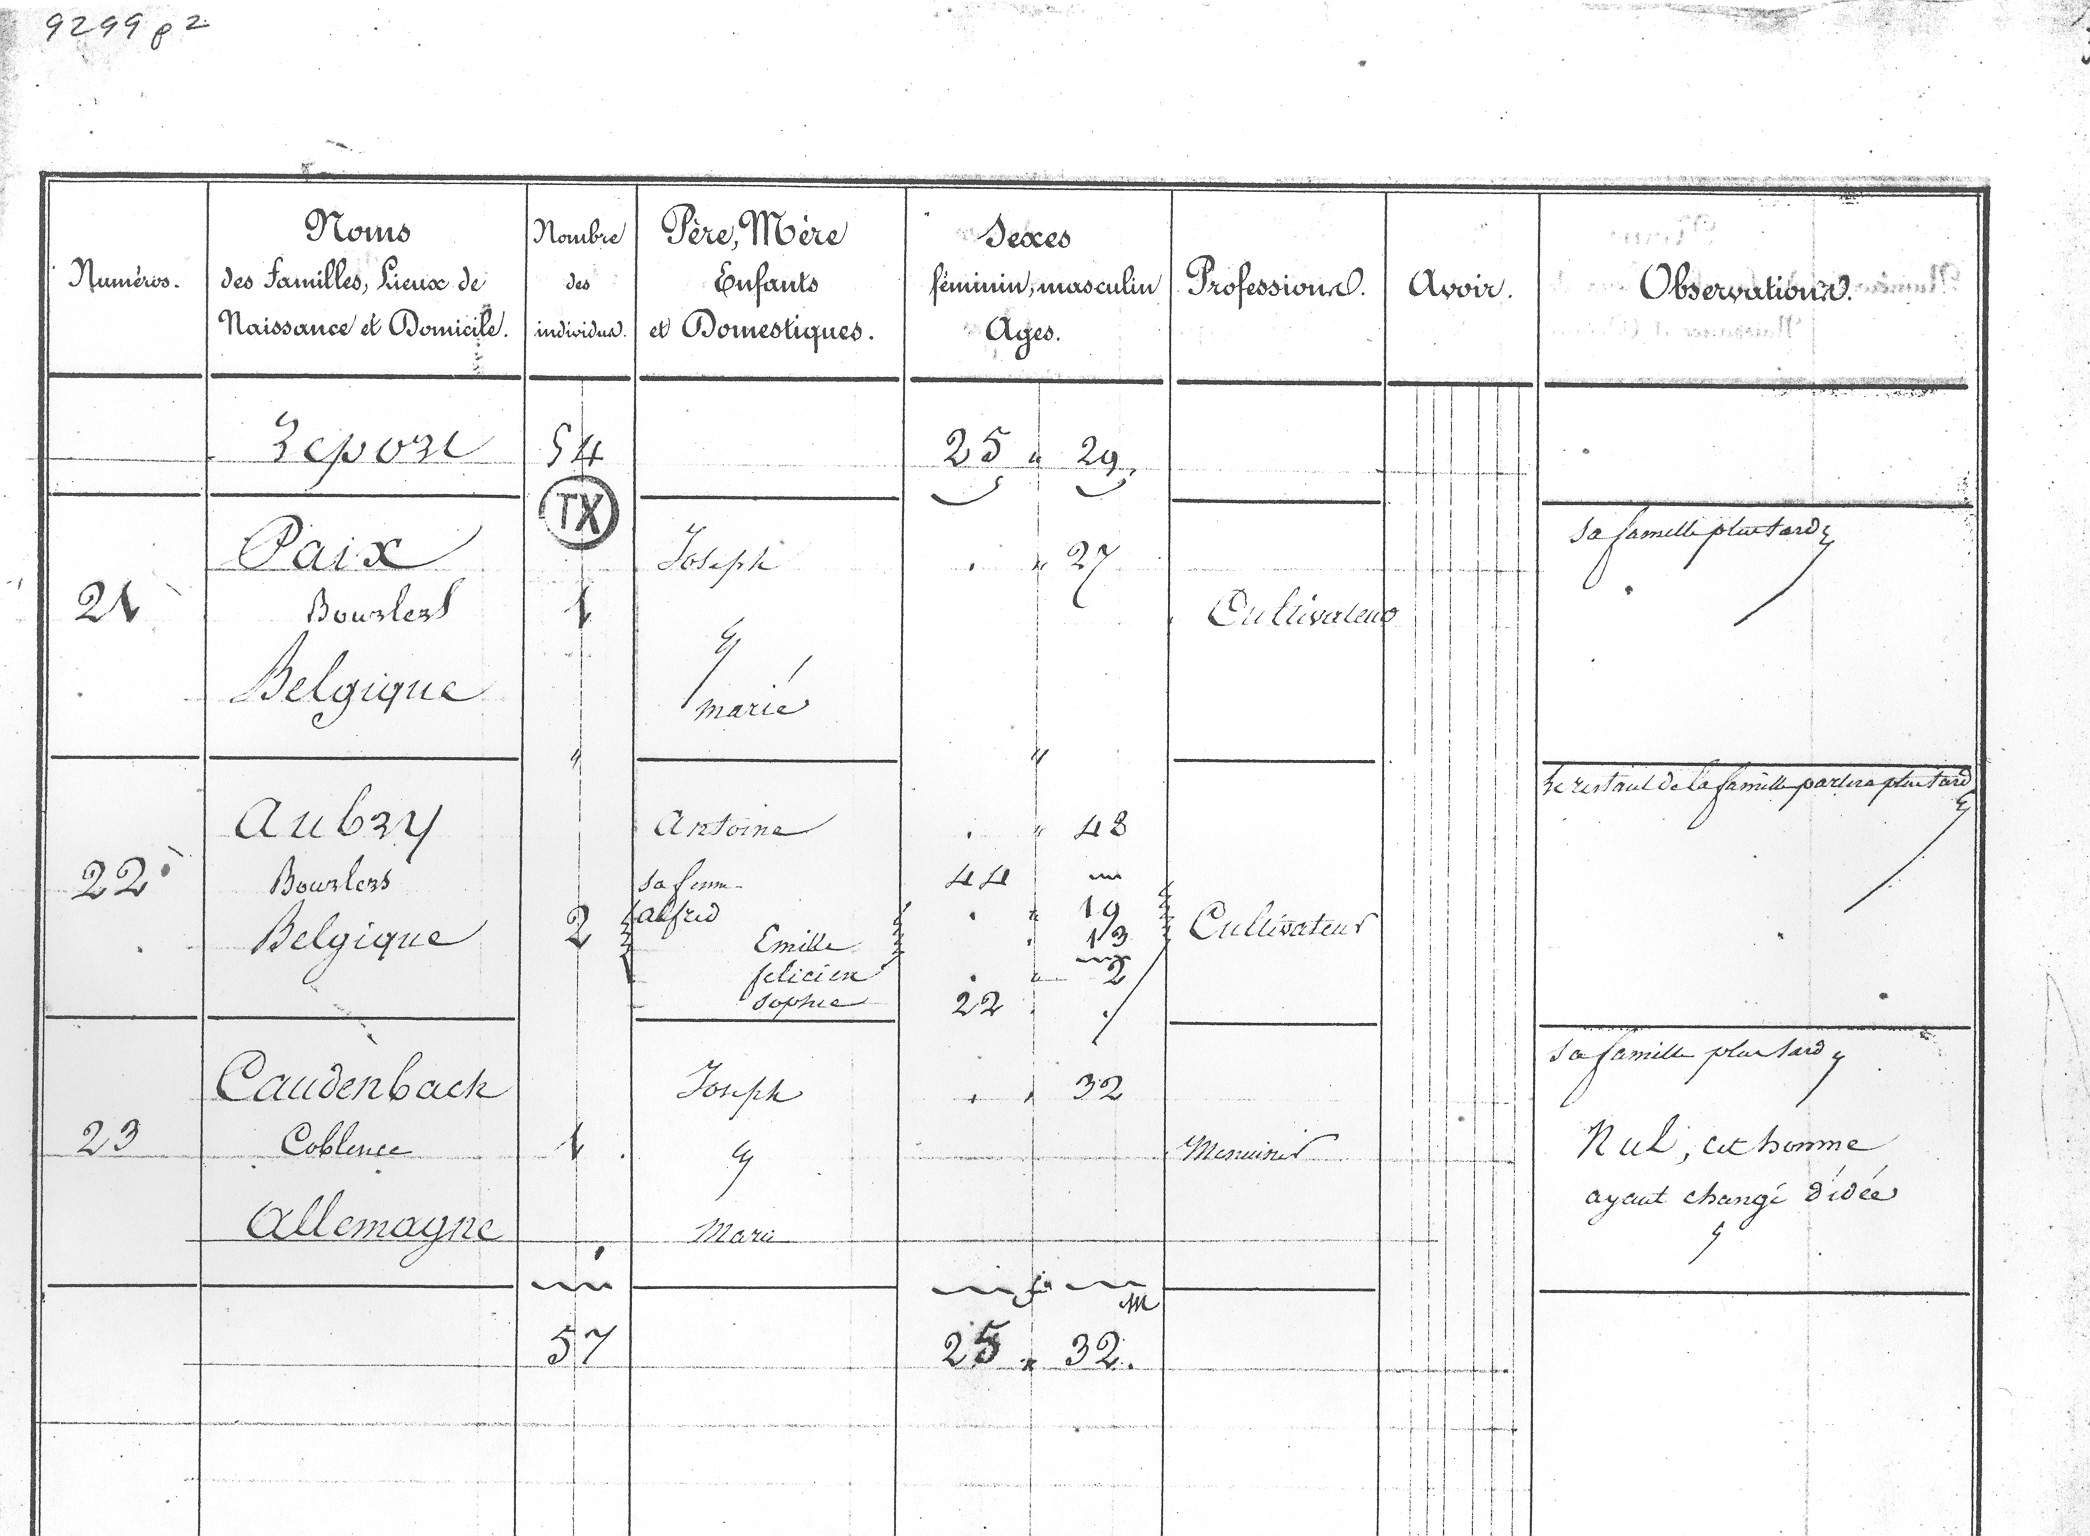 9299 p 2
Numéros.
Noms
des Familles, Lieux de
Naissance et Domicile.
Nombre
des
individus.
Père, Mère
Enfants
et Domestiques.
Sexes
féminin, masculin
Ages.
Professions.
Avoir.
Observations.
Report 54 25 " 29.
TX
Paix Joseph " 27 sa famille plus tard
21 Bourlers 1 Cultivateur
Belgique marié
" "
le restant de la famille partira plus tard
Aubry Antoine " 48
22 Bourlers sa femme 44
Belgique 2 alfred " 19 Cultivateur
Emille 13
felicien " 2
sophie 22
sa famille plus tard
Caudenback Joseph 32
23 Coblence 1 Menuisier Nul, cet homme
ayant changé d'idée
Allemagne Marié
f m
57 25 " 32.